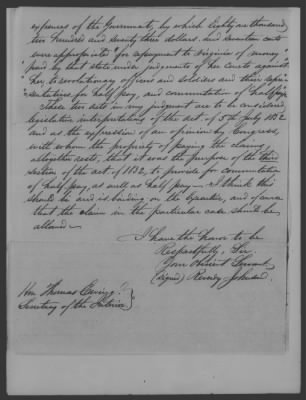 expenses of the Government, by which Eighty six thousand
two hundred and seventy three dollars and seventeen cents
were appropriated "for repayment to Virginia of money
"paid by that state under judgments of her Courts against
"her to revolutionary officers and soldiers and their repre-
"sentatives for half pay, and commutation of "half pay".
These two acts in my judgment are to be considered
legislative interpretations of the act of 5th July 1832
and as the expression of an opinion by Congress,
with whom the propriety of paying the claims
altogether rests, that it was the purpose of the third
section of the act of 1832, to provide for commutation
of half pay, as well as half pay — I think this
should be and is binding on the Executive, and of course
that the claim in the particular case should be
allowed —
I have the honor to be
Respectfully, Sir,
Your Obedient Servant
(signed) Reverdy Johnson
Hon Thomas Ewing
Secretary of the Interior